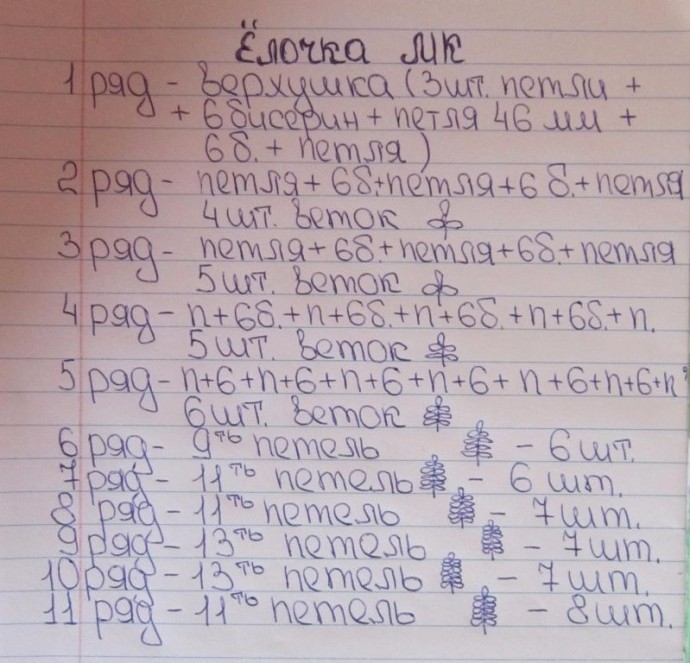 Ёлочка МК
1 ряд - верхушка (3 шт. петли +
+ 6 бисерин + петля 46 мм +
6 б. + петля)
2 ряд - петля + 6б + петля + 6 б. + петля
4 шт. веток
3 ряд - петля + 6б. + петля + 6б. + петля
5 шт. веток
4 ряд - п + 6б. + п + 6б. + п + 6б. + п + 6б. + п.
5 шт. веток
5 ряд - п + 6 + п + 6 + п + 6 + п + 6 + п + 6 + п + 6 + п
6 шт. веток
6 ряд - 9ть петель - 6 шт.
7 ряд - 11ть петель - 6 шт.
8 ряд - 11ть петель - 7 шт.
9 ряд - 13ть петель - 7 шт.
10 ряд - 13ть петель - 7 шт.
11 ряд - 11ть петель - 8 шт.